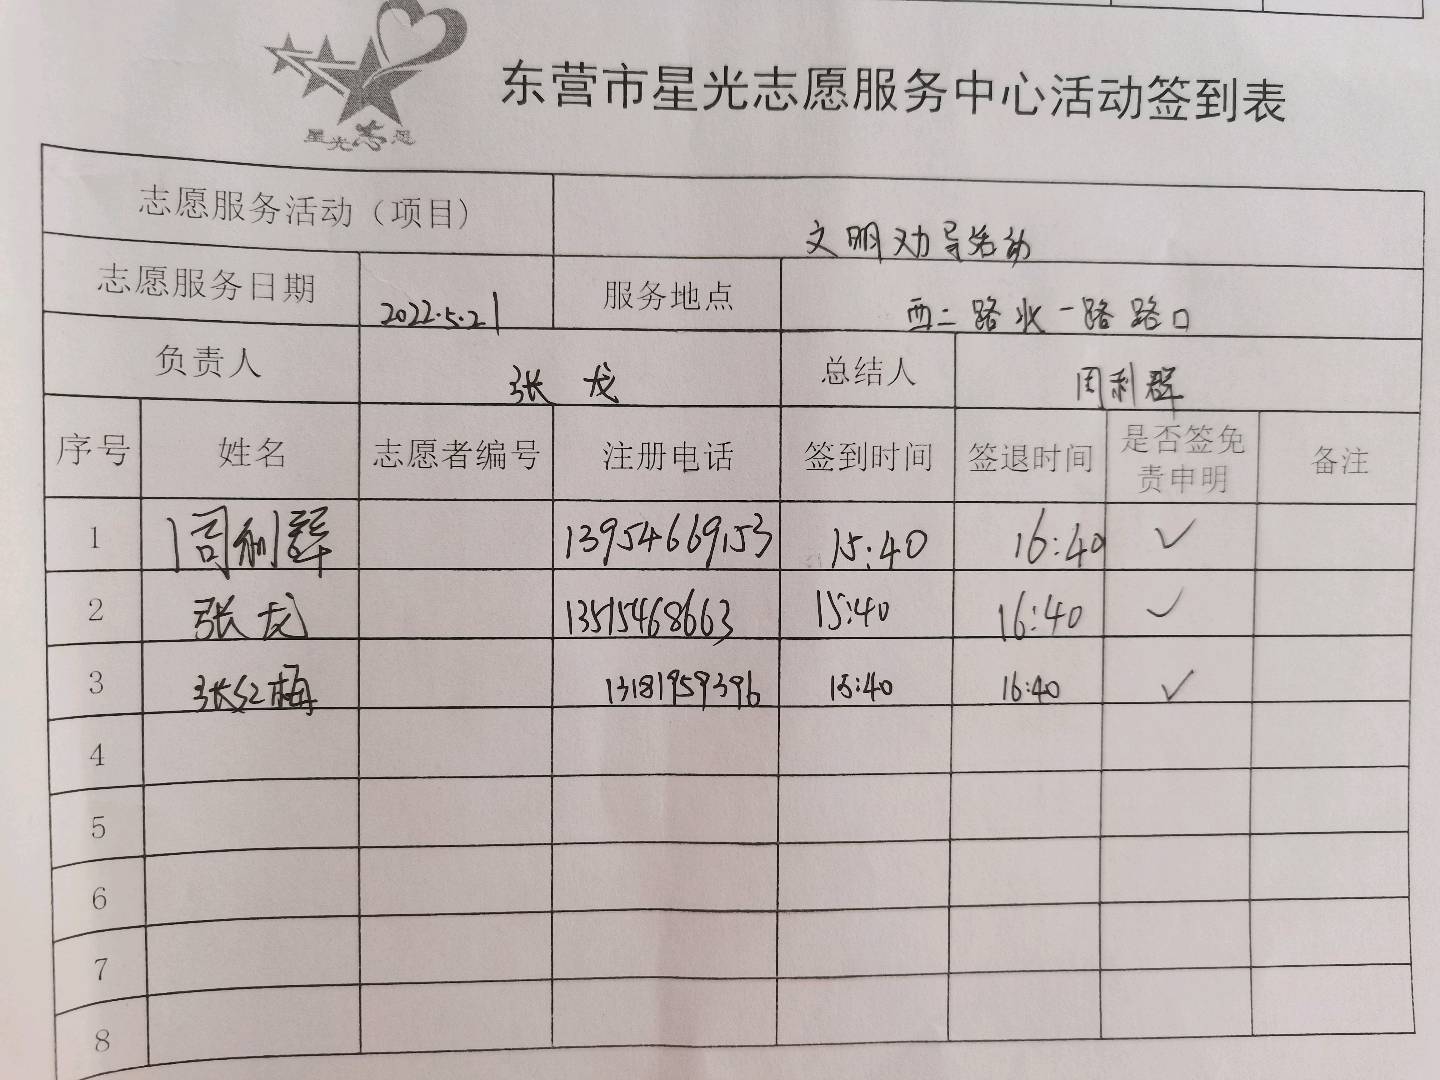 星光志愿
东营市星光志愿服务中心活动签到表
志愿服务活动（项目） 文明劝导活动
志愿服务日期 2022.5.21 服务地点 西二路北一路路口
负责人 张龙 总结人 周利群
序号 姓名 志愿者编号 注册电话 签到时间 签退时间 是否签免责申明 备注
1 周利群 13954669153 15:40 16:40 ✓
2 张龙 13515468663 15:40 16:40 ✓
3 张红梅 13181959396 15:40 16:40 ✓
4
5
6
7
8